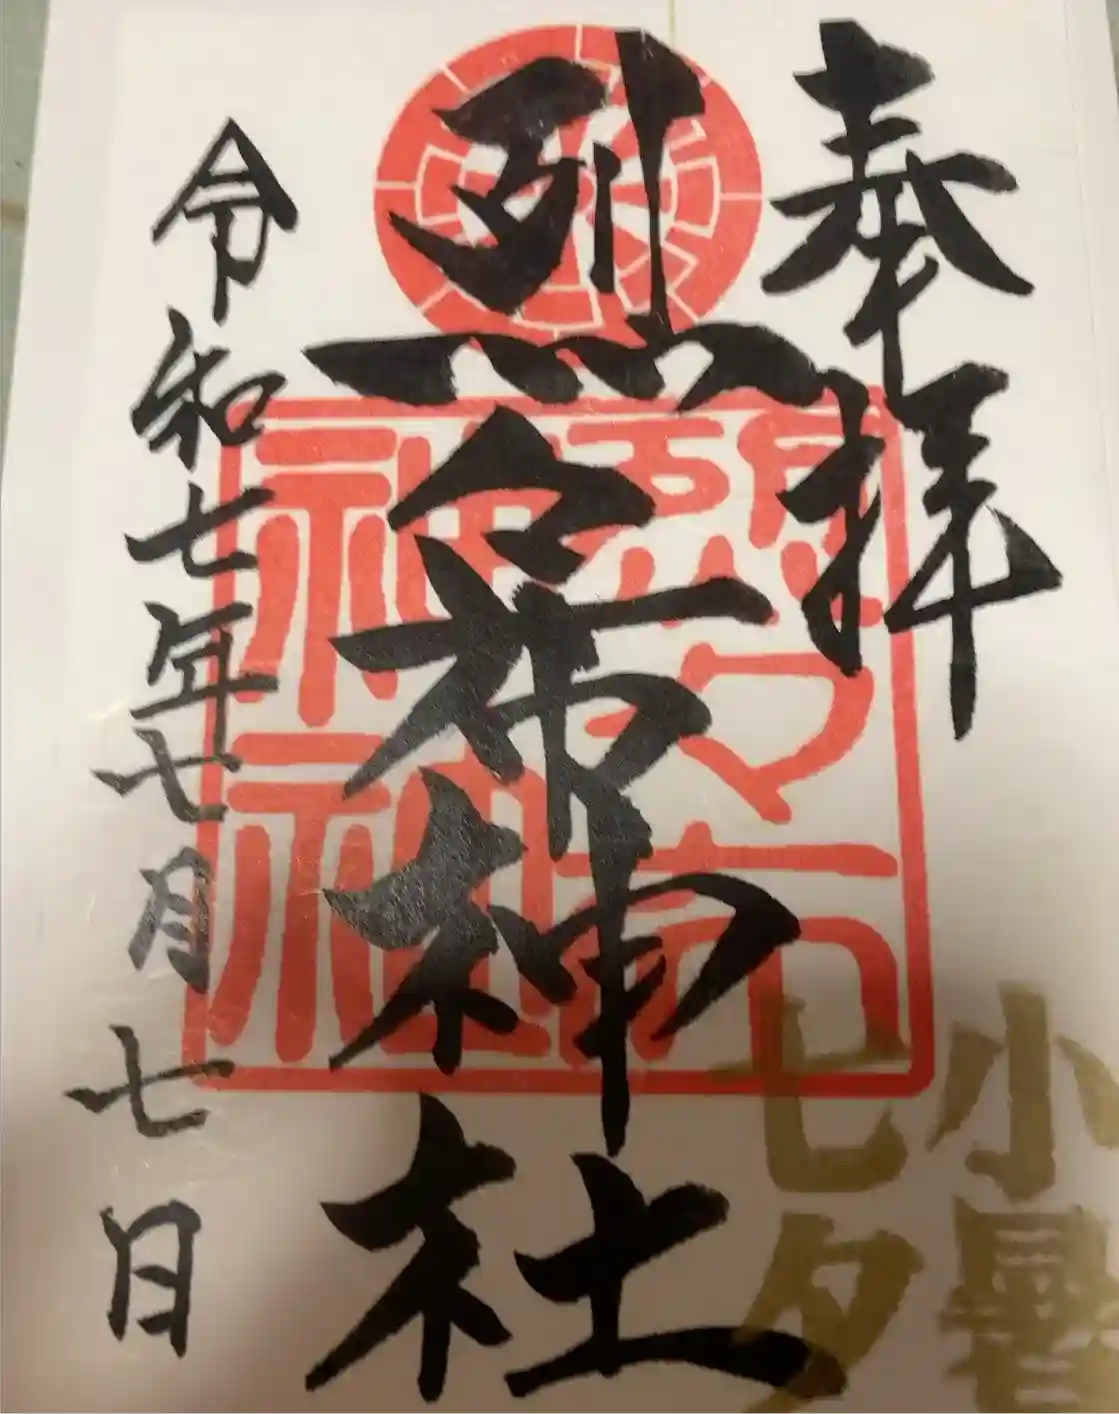 奉拝
小暑
七夕
烈々布神社
烈々布
神社
令和七年七月七日